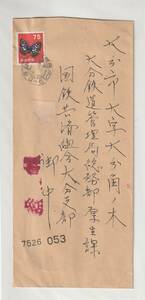 75
大分市大字大分角ノ木
大分鉄道管理局総務部厚生課
国鉄共済組合大分支部
御中
7526 053